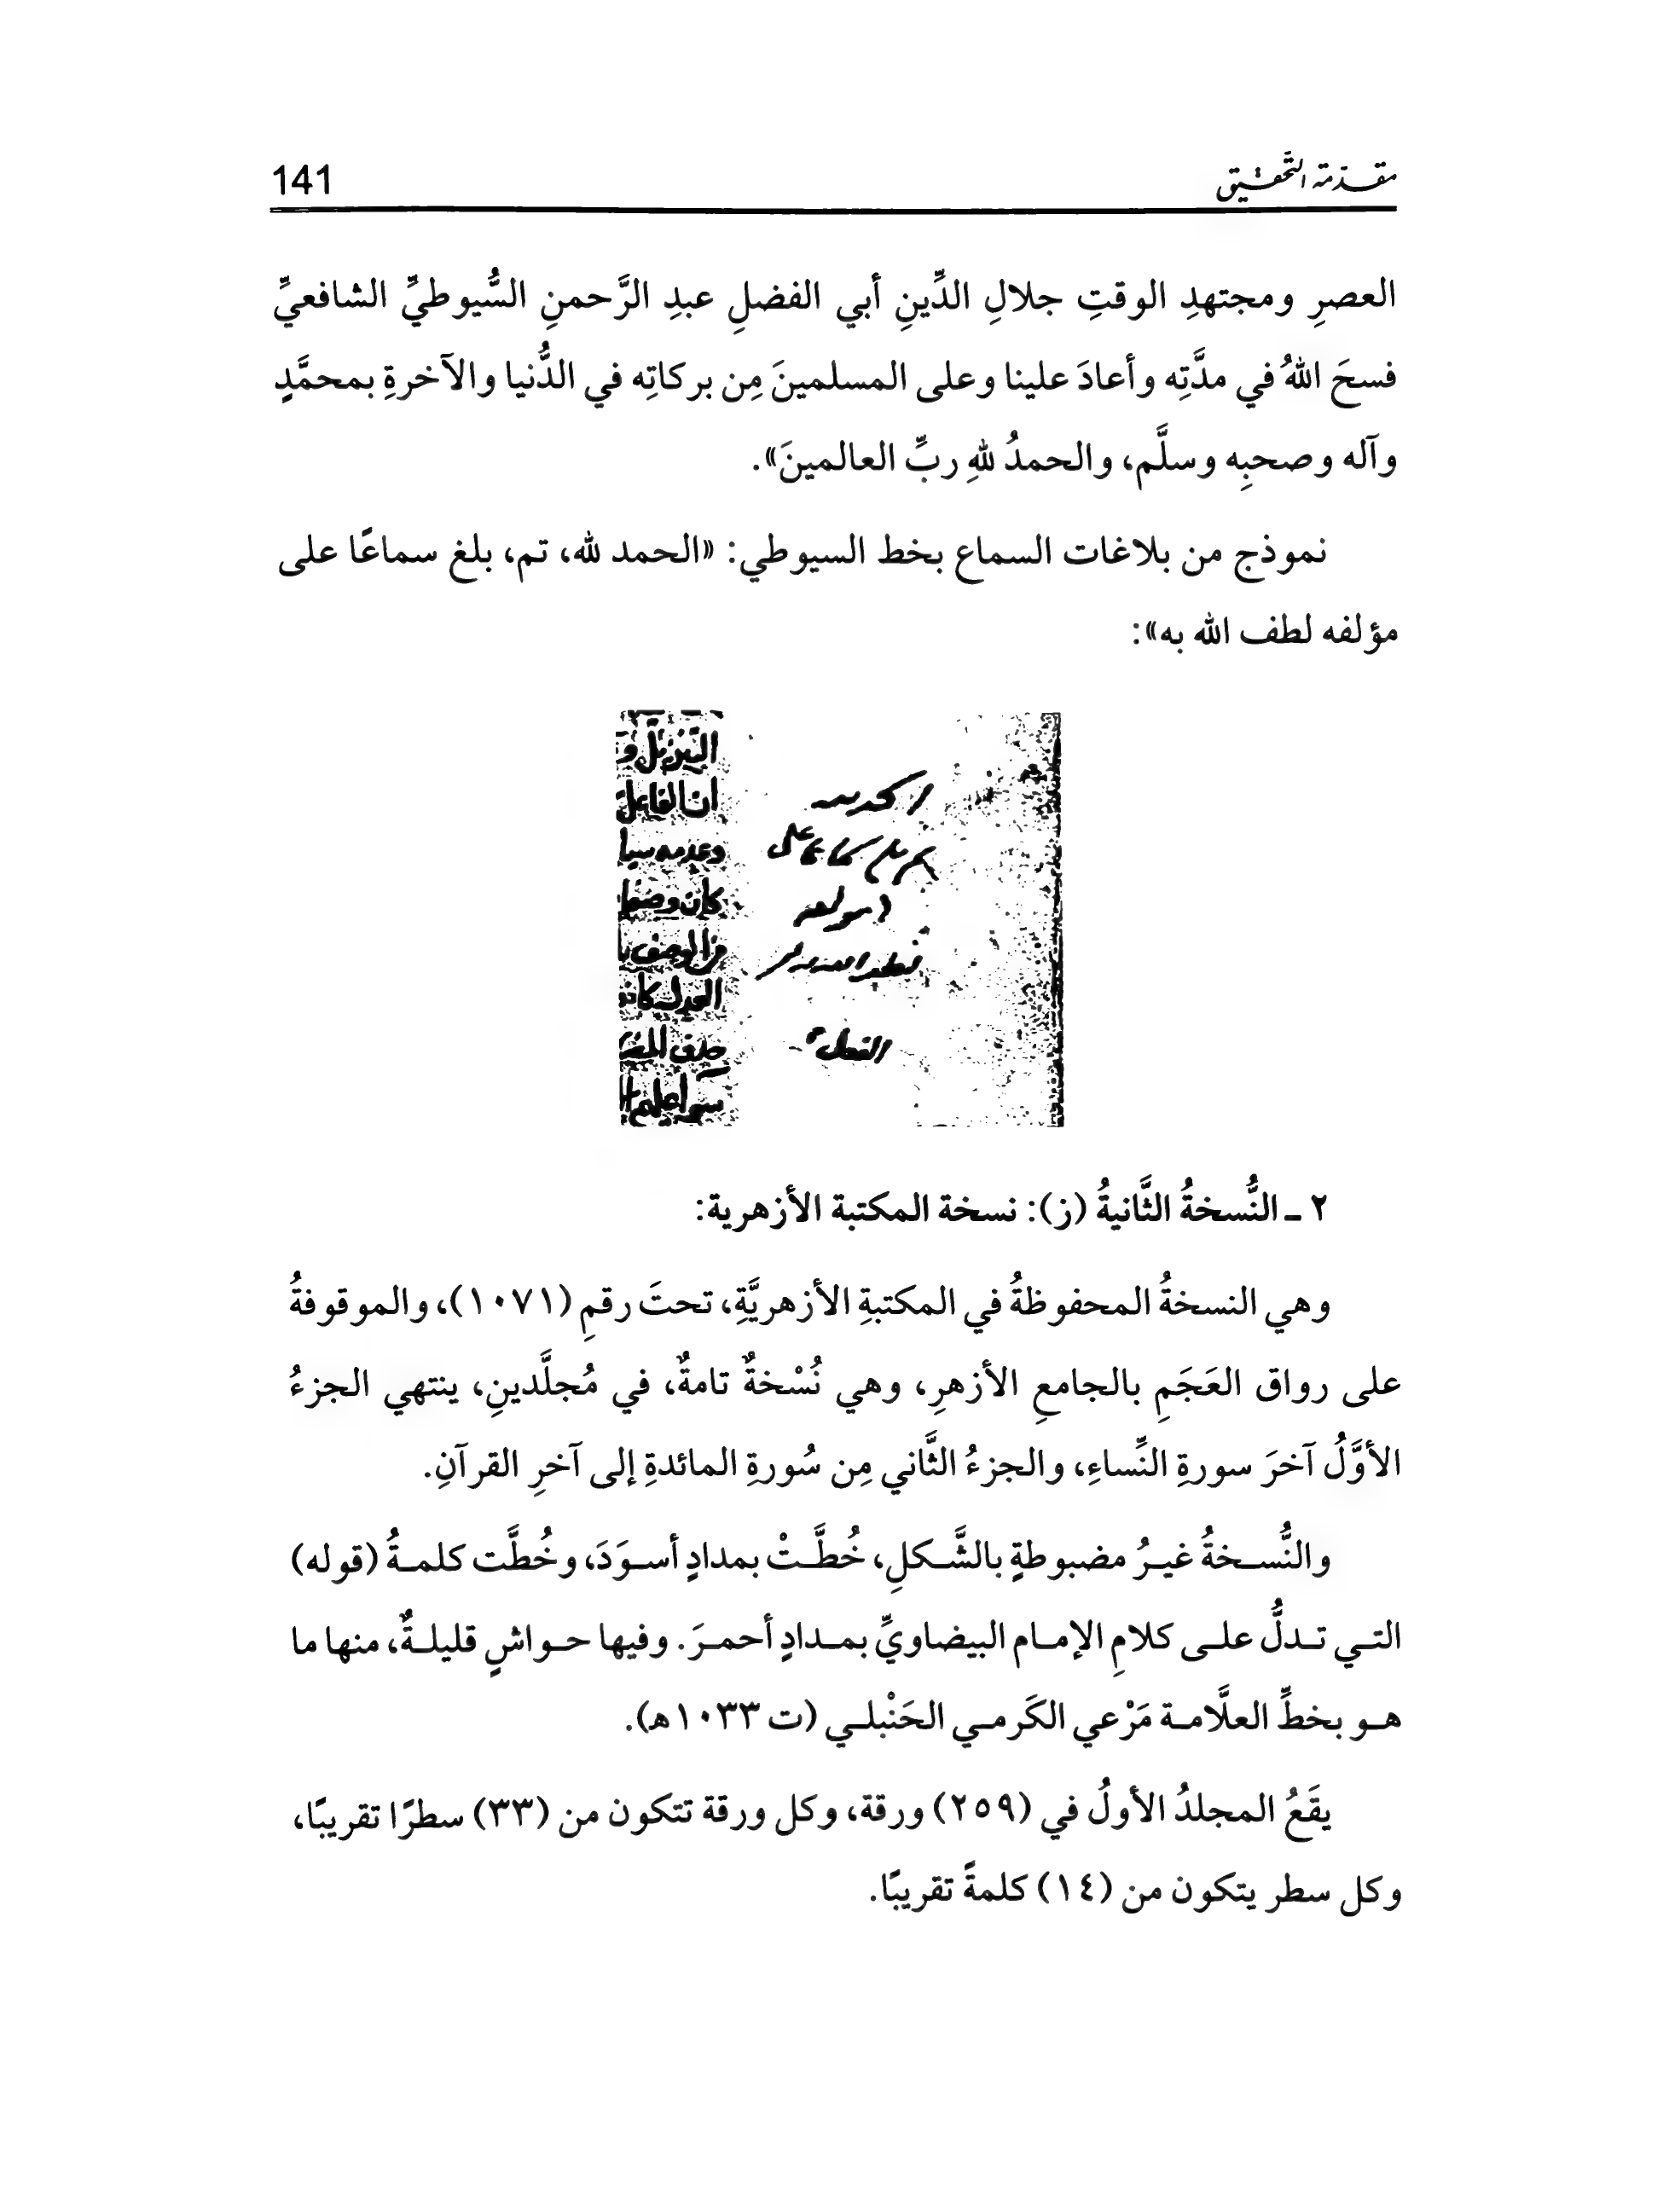 مقدمة التحقيق
141
العصرِ ومجتهدِ الوقتِ جلالِ الدِّينِ أبي الفضلِ عبدِ الرَّحمنِ السُّيوطيِّ الشافعيِّ
فسحَ اللهُ في مدَّتِه وأعادَ علينا وعلى المسلمينَ مِن بركاتِه في الدُّنيا والآخرةِ بمحمَّدٍ
وآله وصحبِه وسلَّم، والحمدُ للهِ ربِّ العالمينَ».
نموذج من بلاغات السماع بخط السيوطي: «الحمد لله، تم، بلغ سماعًا على
مؤلفه لطف الله به»:
الحمد لله
على
مولفه
التنزيل و
ان الفاعل
٢ ـ النُّسخةُ الثَّانيةُ (ز): نسخة المكتبة الأزهرية:
وهي النسخةُ المحفوظةُ في المكتبةِ الأزهريَّةِ، تحتَ رقمِ (١٠٧١)، والموقوفةُ
على رواق العَجَمِ بالجامعِ الأزهرِ، وهي نُسْخةٌ تامةٌ، في مُجلَّدينِ، ينتهي الجزءُ
الأوَّلُ آخرَ سورةِ النِّساءِ، والجزءُ الثَّاني مِن سُورةِ المائدةِ إلى آخرِ القرآنِ.
والنُّسخةُ غيرُ مضبوطةٍ بالشَّكلِ، خُطَّتْ بمدادٍ أسوَدَ، وخُطَّت كلمةُ (قوله)
التي تدلُّ على كلامِ الإمام البيضاويِّ بمدادٍ أحمرَ. وفيها حواشٍ قليلةٌ، منها ما
هو بخطِّ العلَّامة مَرْعي الكَرمي الحَنْبلي (ت ١٠٣٣هـ).
يقَعُ المجلدُ الأولُ في (٢٥٩) ورقة، وكل ورقة تتكون من (٣٣) سطرًا تقريبًا،
وكل سطر يتكون من (١٤) كلمةً تقريبًا.